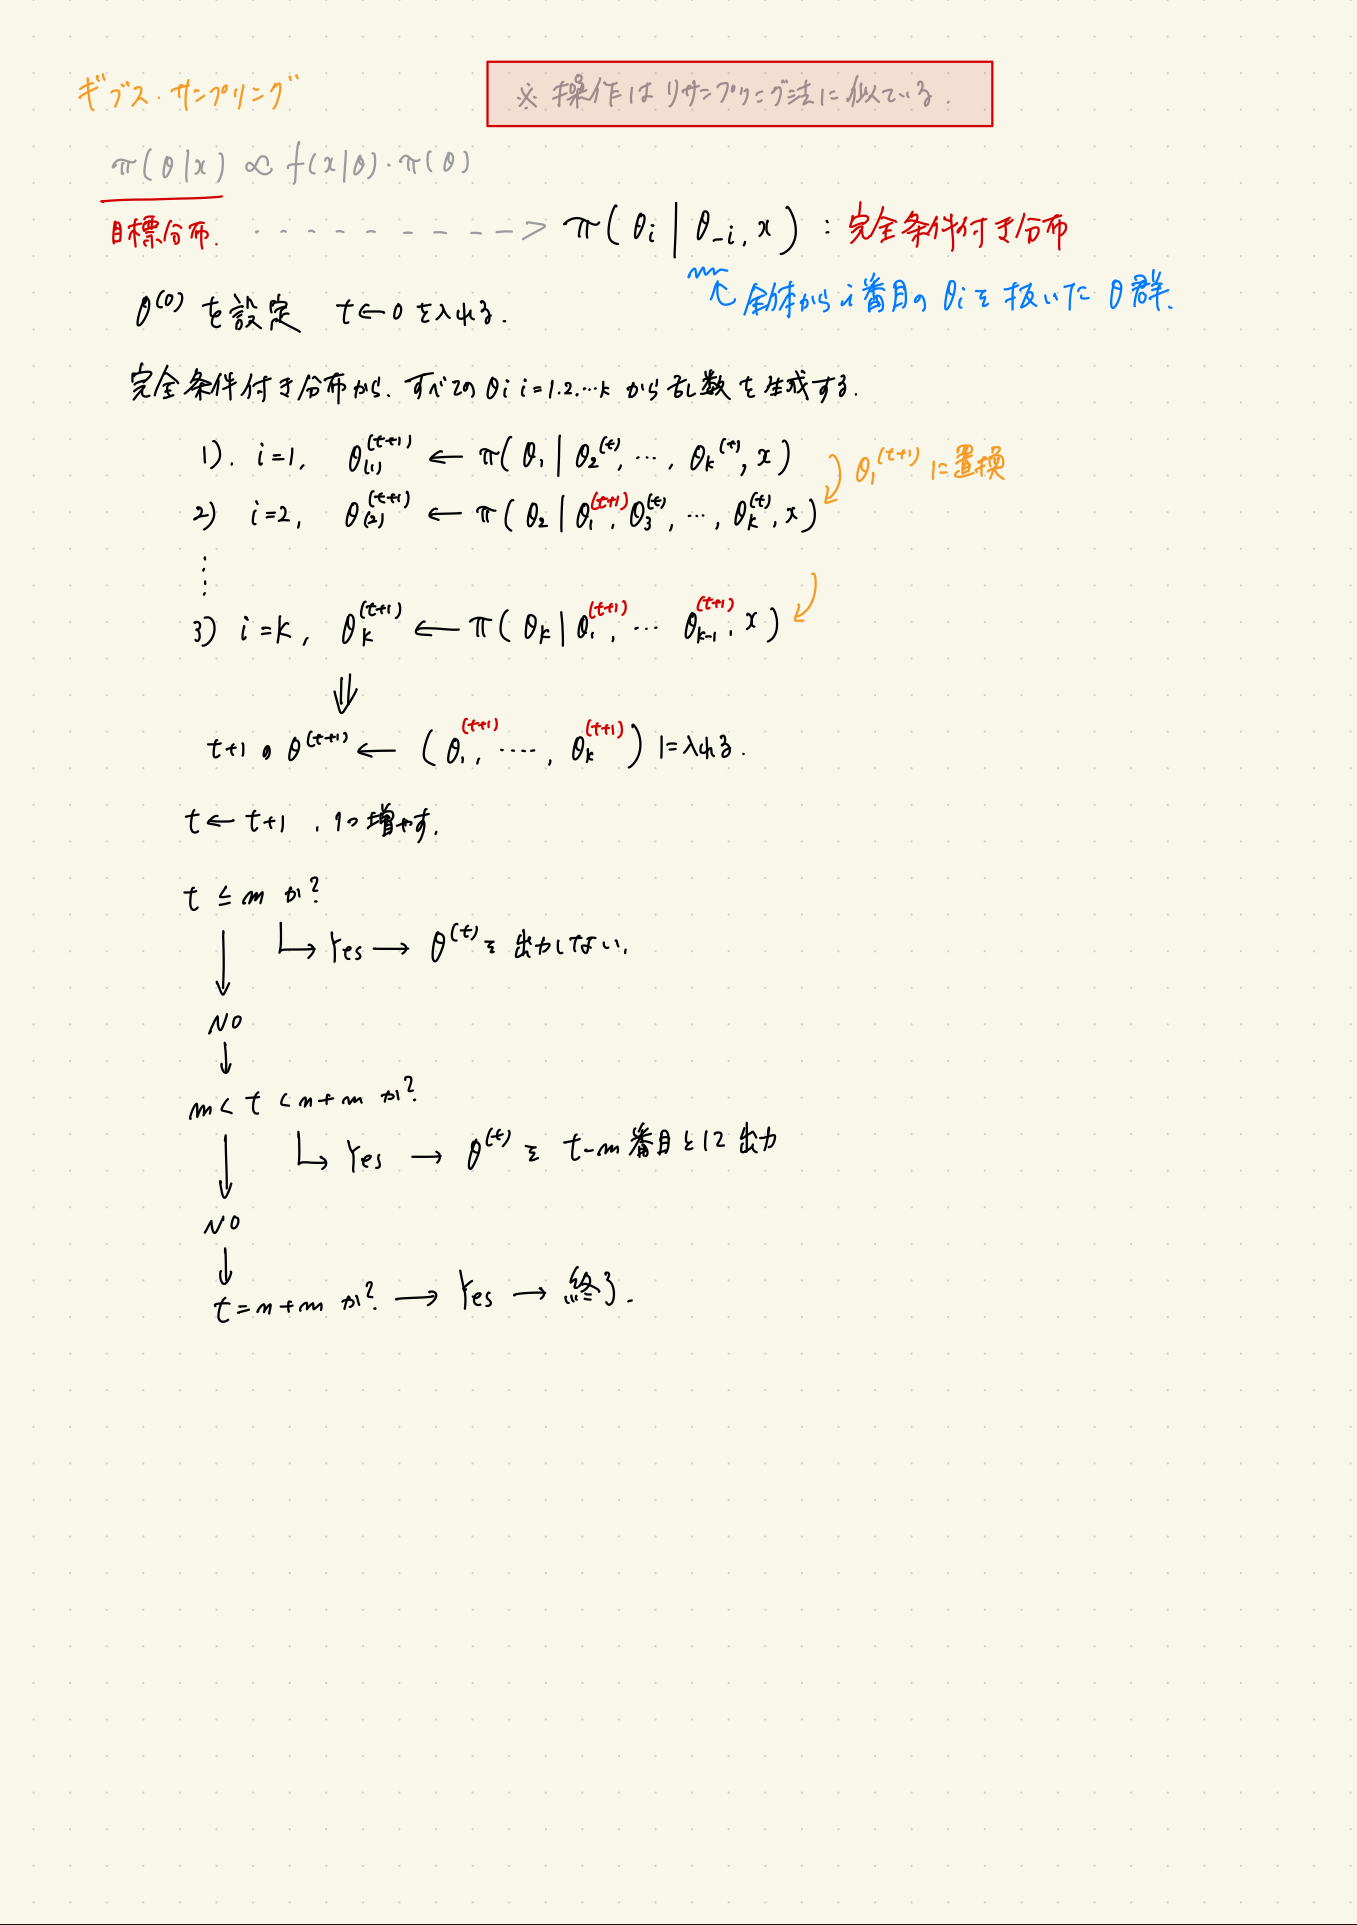 ギブス・サンプリング
※ 操作はリサンプリング法に似ている.
π(θ|x) ∝ f(x|θ)・π(θ)
目標分布. --------> π(θi | θ-i, x) : 完全条件付き分布
↑ 全体から i番目の θi を 抜いた θ群.
θ^(0) を設定 t←0 を入れる.
完全条件付き分布から、すべての θi i=1.2.…k から乱数を生成する.
1). i=1, θ(1)^(t+1) ← π(θ1 | θ2^(t), …, θk^(t), x)
θ1^(t+1) に置換
2) i=2, θ(2)^(t+1) ← π(θ2 | θ1^(t+1), θ3^(t), …, θk^(t), x)
⋮
3) i=k, θk^(t+1) ← π(θk | θ1^(t+1), … θk-1^(t+1), x)
⇓
t+1 の θ^(t+1) ← (θ1^(t+1), ‥‥, θk^(t+1)) に入れる.
t ← t+1 . 1つ増やす.
t ≦ m か?
↳ Yes → θ^(t) を 出力しない.
↓
NO
↓
m < t < n+m か?
↳ Yes → θ^(t) を t-m 番目として 出力
↓
NO
↓
t=n+m か? → Yes → 終了.